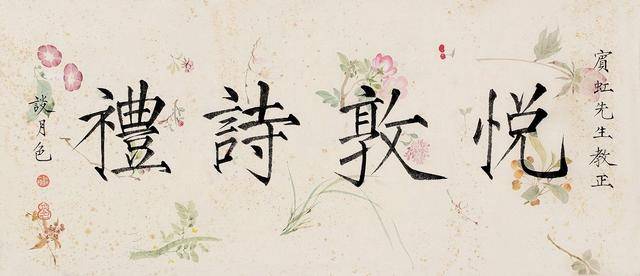 賓虹先生教正
悦敦詩禮
談月色